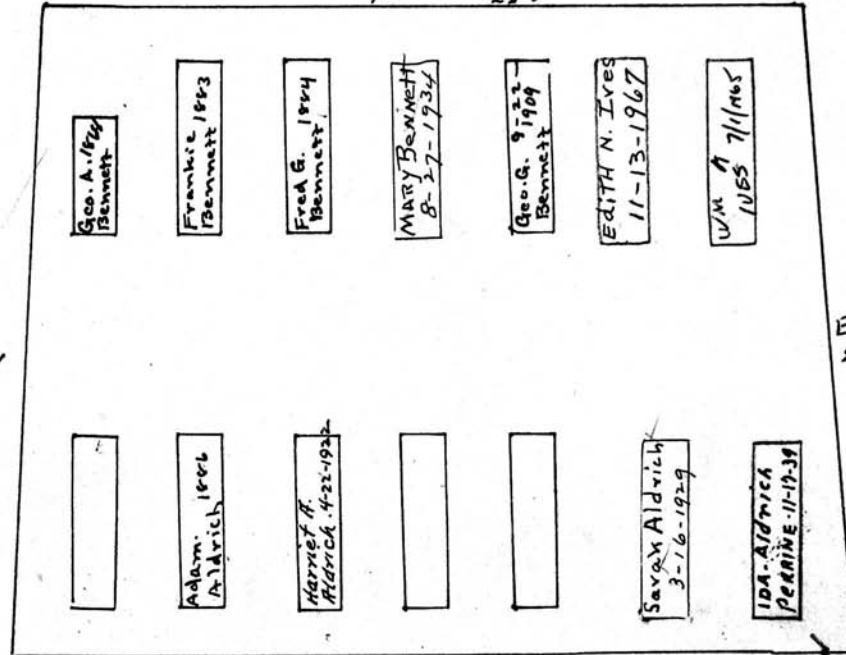 Geo. A. 188
Bennett
Frankie 1883
Bennett
Fred G. 1884
Bennett
MARY BENNETT
8-27-1934
Geo. G. 9-22-
1909
Bennett
EdiTH N. Ives
11-13-1967
WM A
IVES 7/1/1965
Adam. 1886
Aldrich
Harriet A.
Aldrich. 4-22-1922
Sarah Aldrich
3-16-1929
IDA-Aldrich
PERRINE-11-19-39